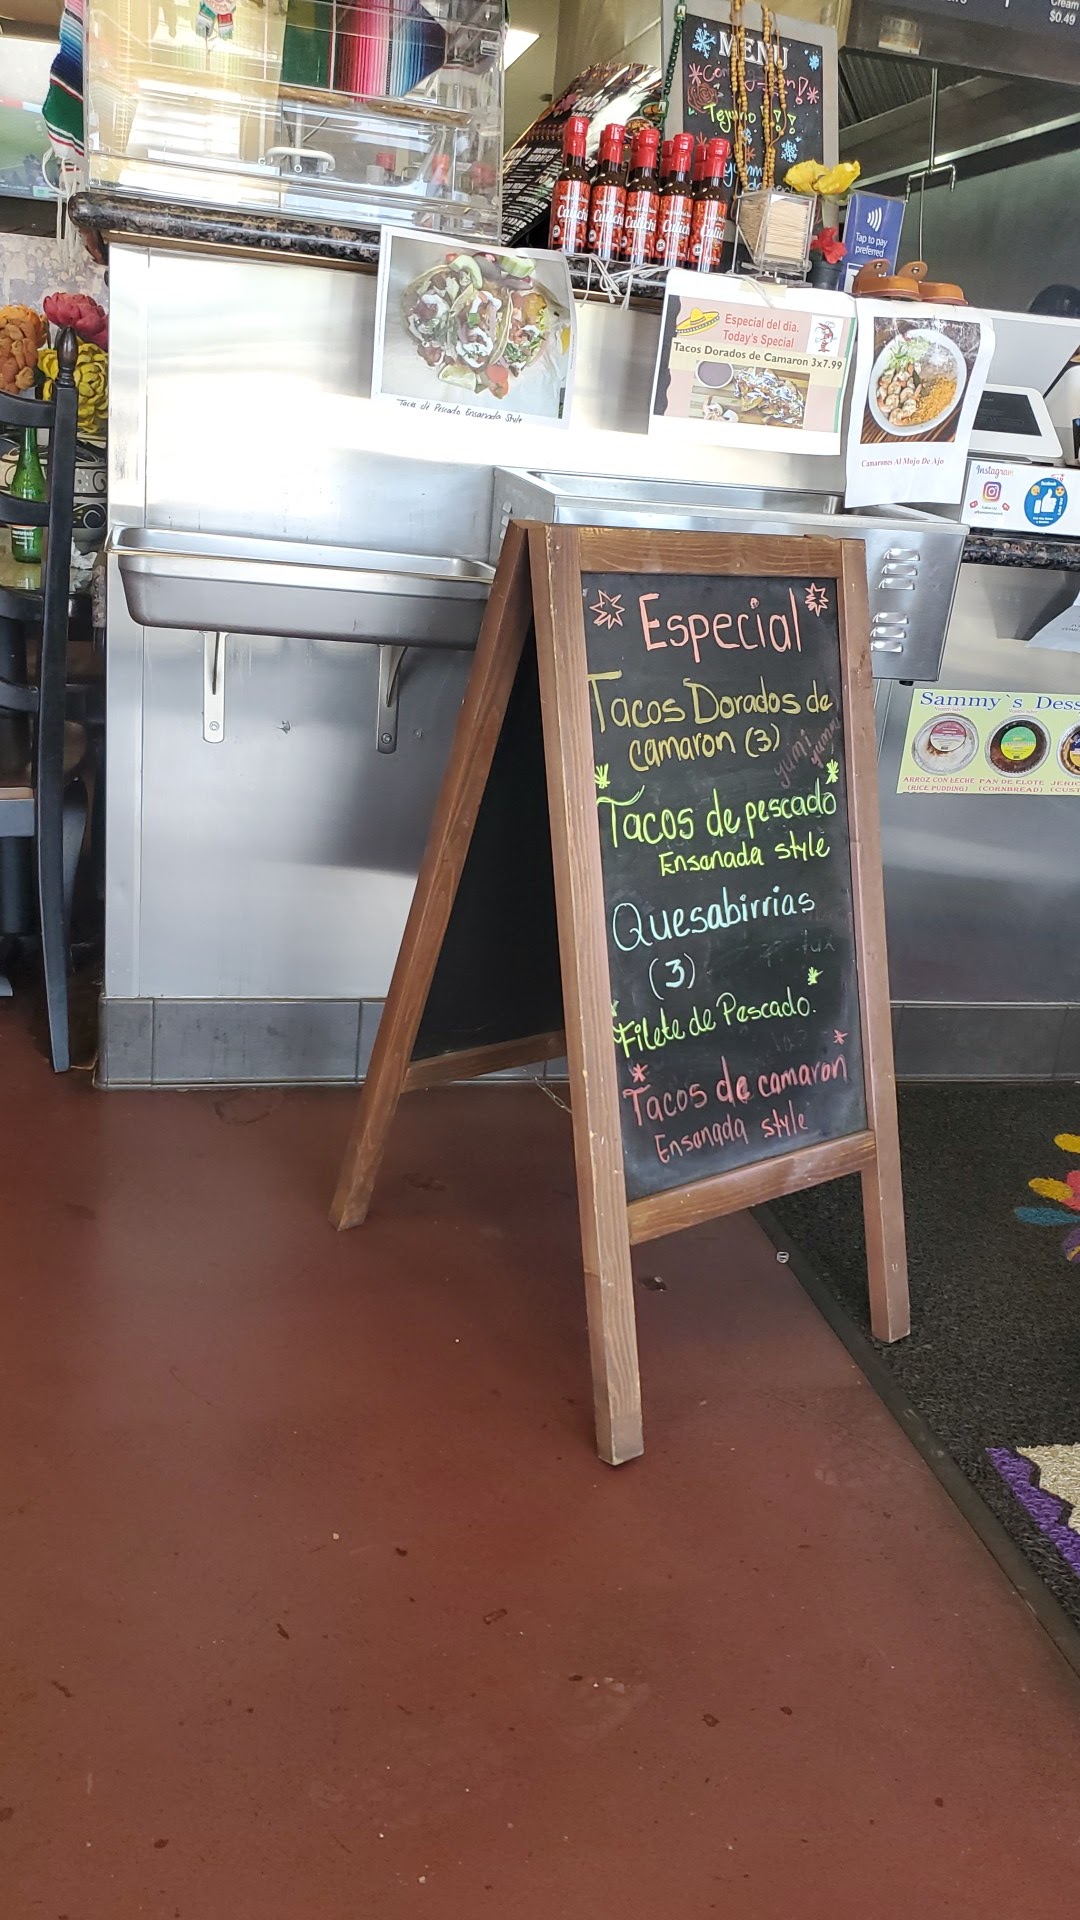 Cream
$0.49
MENU
Tap to pay
preferred
Tacos de Pescado Ensenada Style
Especial del dia.
Today's Special
Tacos Dorados de Camaron 3x7.99
Camarones Al Mojo De Ajo
Instagram
facebook
Especial
Tacos Dorados de
camaron (3)
yumi yummi
Tacos de pescado
Ensenada style
Quesabirrias
(3)
Filete de Pescado.
Tacos de camaron
Ensenada style
Sammy`s Dess
ARROZ CON LECHE PAN DE ELOTE JERIC
(RICE PUDDING) (CORNBREAD) (CUST